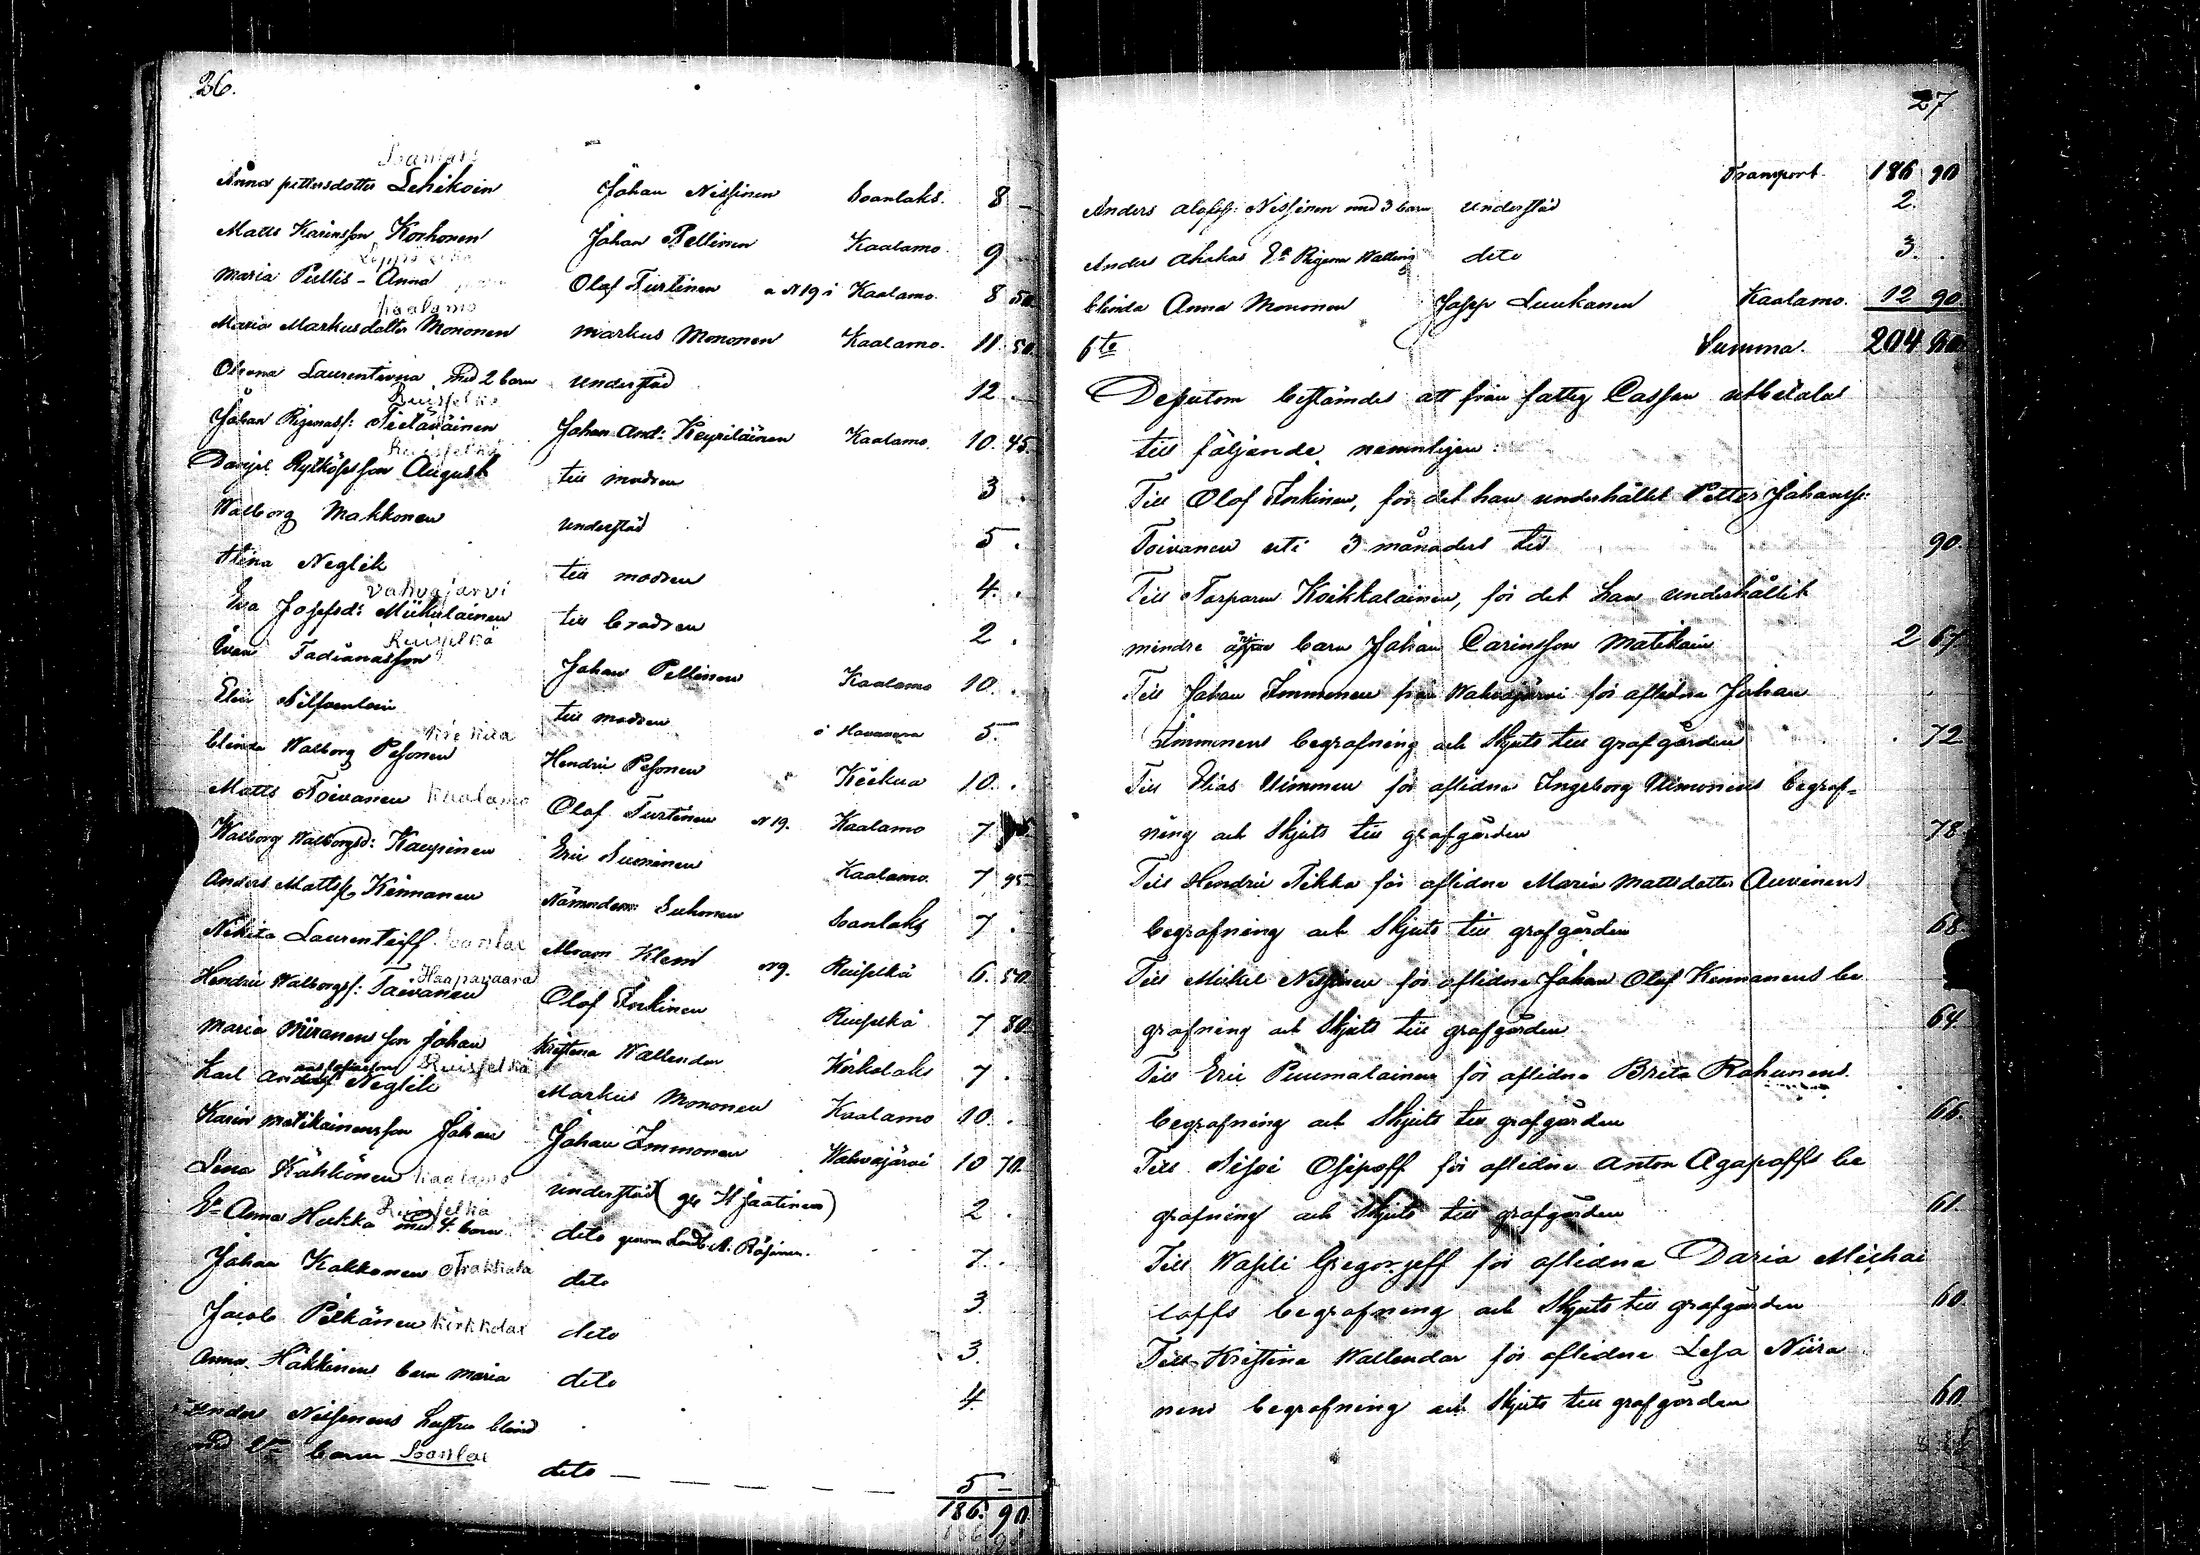 26.
Soanlaks
Anna pettersdotter Lehikoin Johan Nissinen Soanlaks. 8 –
Matts Karinsson Korhonen Johan Pellinen Kaalamo. 9
Maria Pullis - Anna Olof Turtinen a N 19 i Kaalamo. 8 50.
Kaalamo
Maria Markusdotter Mononen Markus Mononen Kaalamo. 11. 50.
Laurentievna med 2 barn understöd 12 .
Ruisselkä
Johan Rigenass: Tietäväinen Johan And: Keyriläinen Kaalamo. 10. 45.
Ruisselkä
August till modren 3 .
Walborg Makkonen understöd 5 .
Stina Neglik till modren 4. .
Vahvajärvi
Eva Josefsd: Miikulainen till brodren 2 .
Ruisselkä
Ivan Tadianasson Johan Pellinen Kaalamo 10. .
till modren i Havuvaara 5.
Kiekua
blinda Walborg Pesonen Hendric Pesonen Kiekua 10. .
Matts Toivanen Kaalamo Olof Turtinen N 19. Kaalamo 7
Walborg Walborgsd: Kaupinen Eric Suoninen Kaalamo. 7 95
Anders Mattsss Kinnanen Nämndem: Suhonen Soanlaks 7 .
Nikita Laurenteiff Soanlax Klem N 9. Ruiselkä 6. 50.
Haapavaara
Hendric Walborgs: Taivanen Olof Sorkinen Ruiselkä 7 80.
Maria Miiranens son Johan Kristina Wallendar Kirkolaks 7 .
Ruisselkä
Karl Neglik Markus Mononen Kaalamo 10. .
Karin Matikainens son Johan Johan Immonen Wahvajärvi 10 70.
Lena Kähkönen Kaalamo understöd (ges H Jaatinen) 2 .
Ruisselkä
Ea Anna Hukka med 4. barn dito genom Landb. A: Räsänen. 7. .
Johan Kakkonen dito 3.
Jacob Pitkänen Kirkkolax dito 3.
Anna Häkkinens barn Maria dito 4.
Anders Nissinens hustru blind
med barn Soanlax dito – – – – – 5 –
186. 90

27
Transport. 186 90
Anders Olofss: Nissinen med 3 barn understöd 2.
Anders Ea Regina Walling dito 3. .
blinda Anna Mononen Josep Luukanen Kaalamo. 12 90.
6te Summa. 204 90.
Desutom bestämdes att från fattig Cassan utbetalas
till följande, nemnligen:
Till Olof Sorkinen, för det han underhållit Petter Johanss:
Toivanen uti 3 månaders tid 90.
Till Torparen Koikkalainen, för det han underhållit
mindre åriga barn Johan Carinsson Matikain 2 67.
Till Johan Immonen från Wahvajärvi för aflidna Johan
Immonens begrafning och Skjuts till grafgården 72
Till Elias Uimonen för aflidna Ingeborg Uimonens begraf=
ning och Skjuts till grafgården 78.
Till Hendric Tikka för aflidna Maria Mattsdotter Auvinens
begrafning och Skjuts till grafgården 68.
Till Mickel Nissinen för aflidna Johan Olof Kinnanens be
grafning och Skjuts till grafgården 64.
Till Eric Puumalainen för aflidna Brita Rohunens
begrafning och Skjuts till grafgården 66.
Till Sissoi Osipoff för aflidna Anton Agapoffs be
grafning och Skjuts till grafgården 61.
Till Wasili Gregorjeff för aflidna Daria Michai
loffs begrafning och Skjuts till grafgården 60.
Till Kristina Wallendar för aflidna Lesa Niira
nens begrafning och Skjuts till grafgården 60.